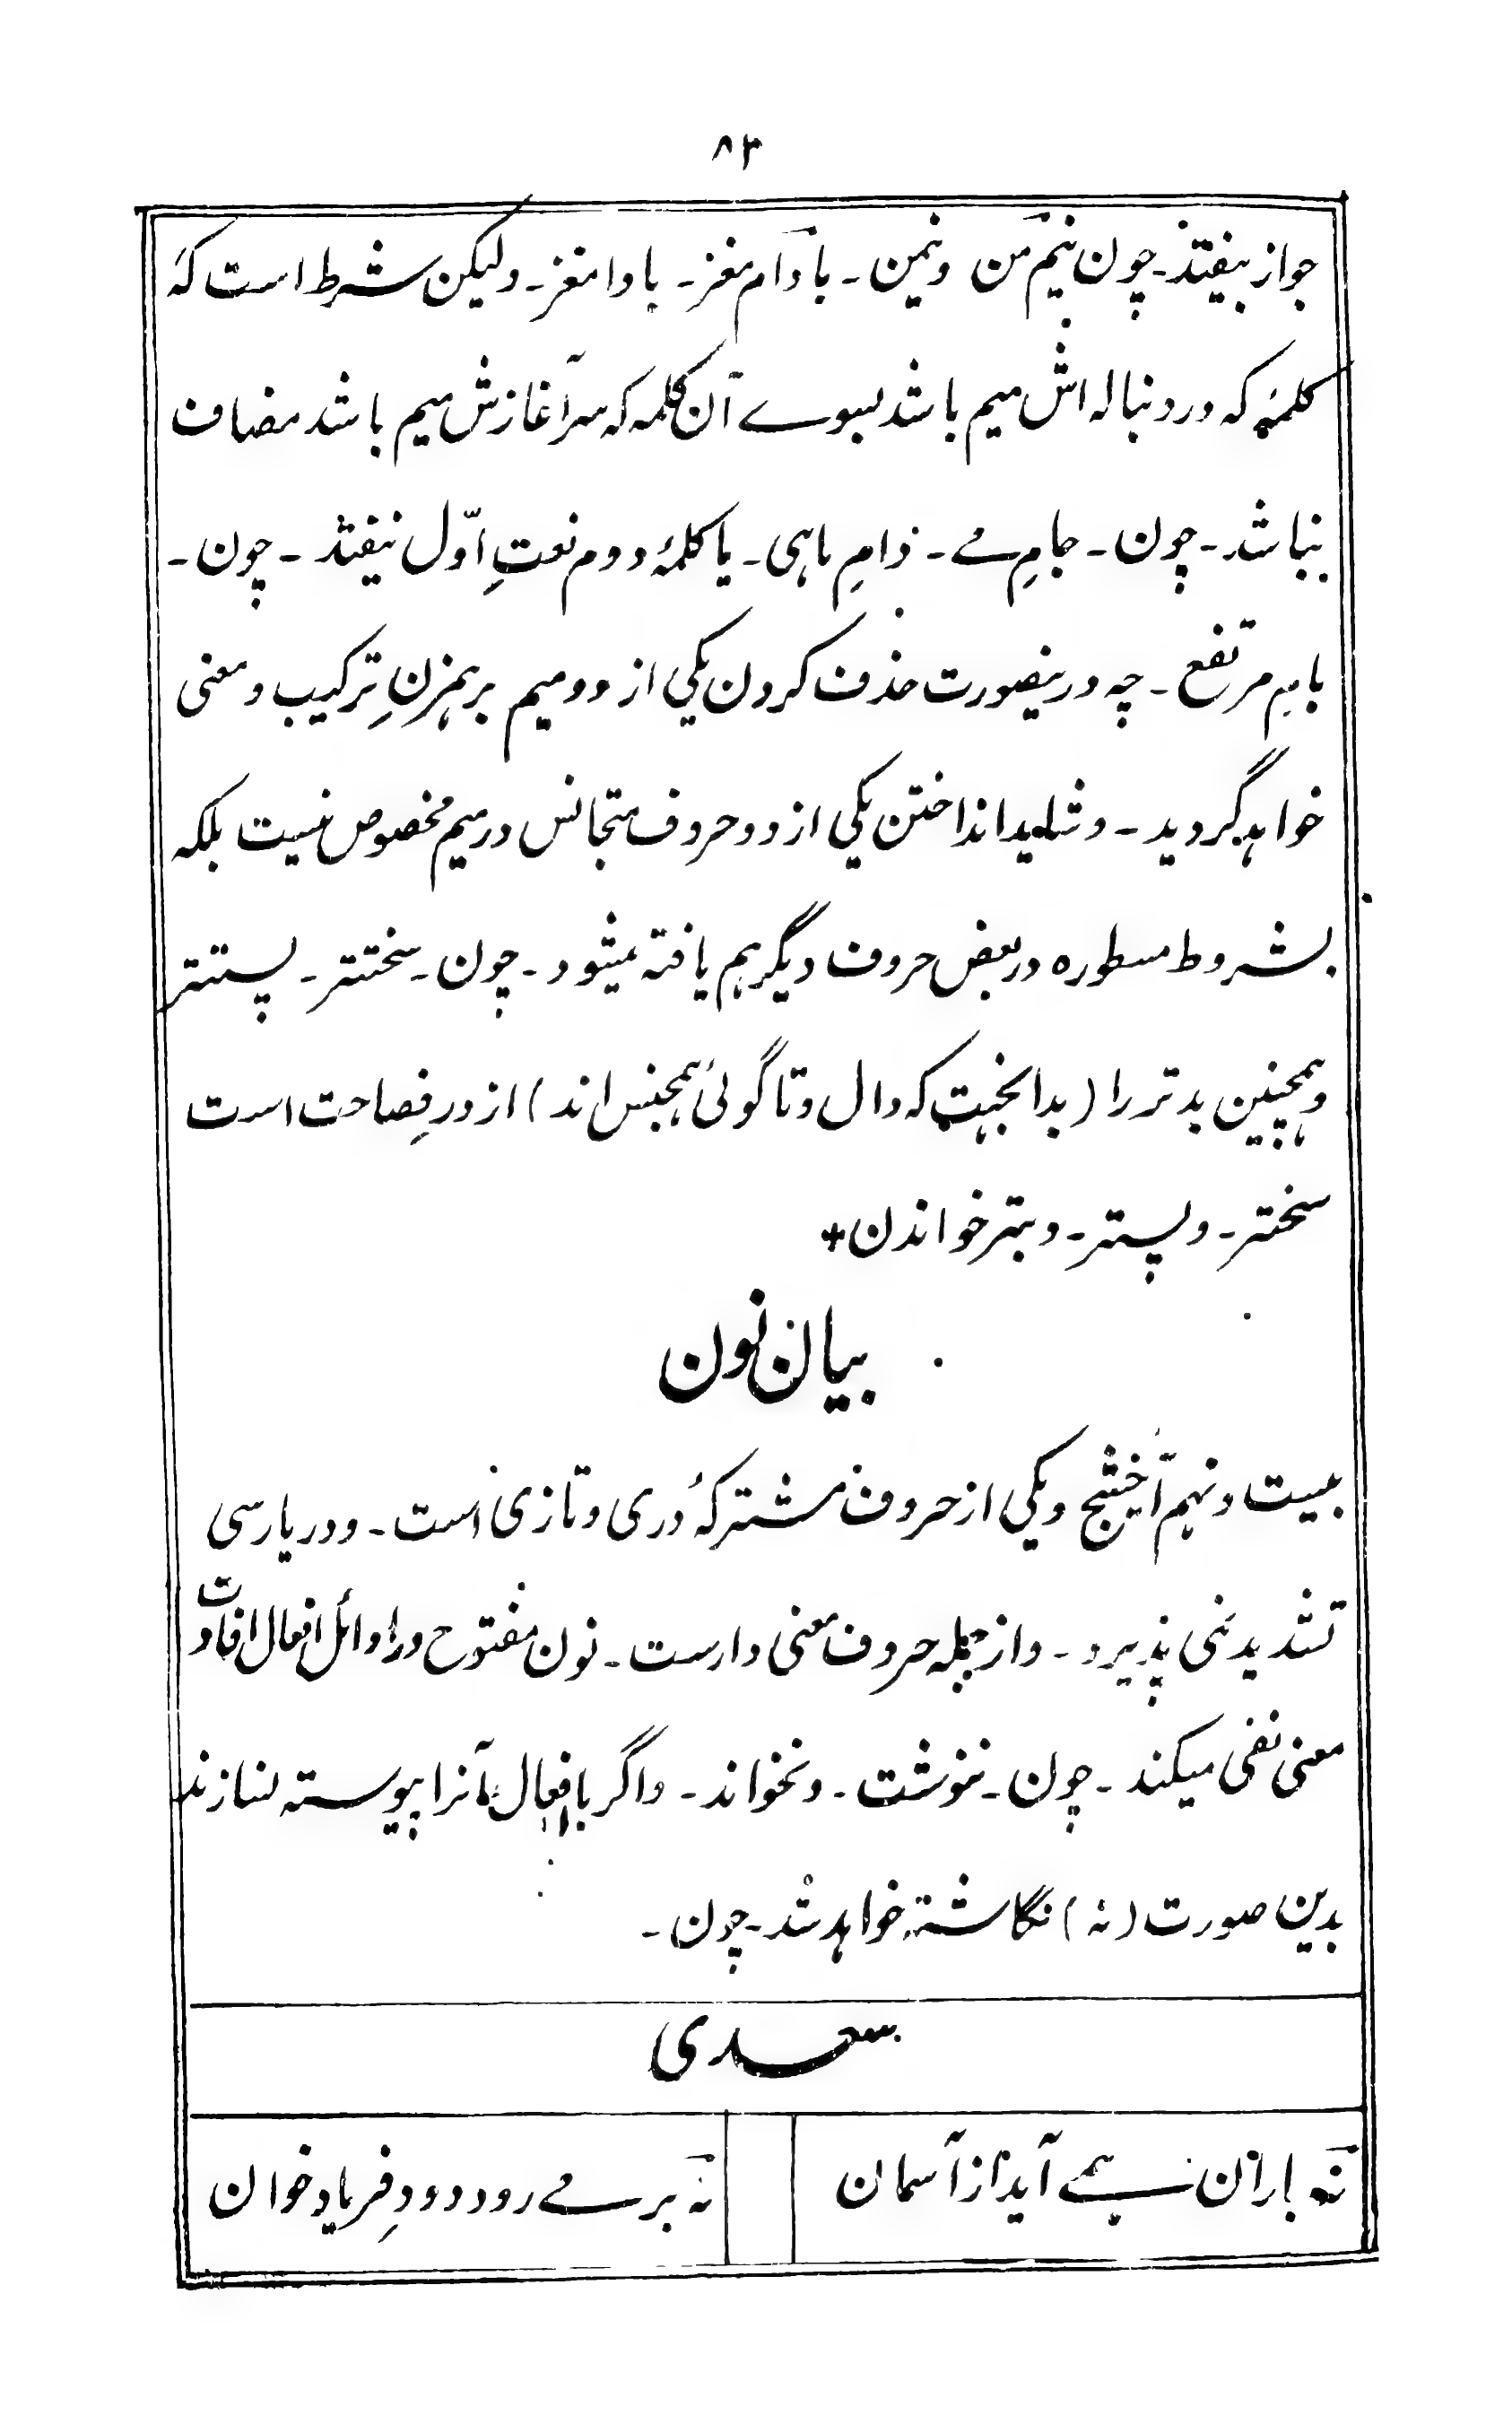 ۸۳
جواز بیفتد۔ چون نیم من ونیمن۔ بادام مغز۔ بادامغز۔ ولیکن شرط است کہ
کلمۂ کہ در دنبالہ اش میم باشد بسوے آن کلمہ کہ سرآغازش میم باشد مضاف
نباشد۔ چون۔ جامِ مے۔ دامِ ماہی۔ یا کلمۂ دوم نعتِ اوّل نیفتد۔ چون۔
بامِ مرتفع۔ چہ درینصورت حذف کردن یکی از دو میم برہمزنِ ترکیب و معنی
خواہد گردید۔ و شاید انداختن یکی از دو حروف متجانس در میم مخصوص نیست بلکہ
بشروط مسطورہ در بعض حروف دیگر ہم یافتہ میشود۔ چون۔ سختتر۔ پستتر
وہمچنین بدتر را (بدانجہت کہ دال و تا گوئی ہمجنس اند) از درِ فصاحت است
سختر۔ وپستر۔ وبتر خواندن*
بیان نون
بیست و نہم آخشیج و یکی از حروف مشترکۂ دری و تازی است۔ و در پارسی
تشدید نمی پذیرد۔ و از جملہ حروف معنی دارست۔ نون مفتوح در اوائل افعال افادت
معنی نفی میکند۔ چون۔ ننوشت۔ ونخواند۔ واگر بافعال آنرا پیوستہ نسازند
بدین صورت (نہ) نگاشتہ خواہد شد۔ چون۔
سعدی
نہ باران ہمے آید از آسمان نہ بر مے رود دودِ فریاد خوان